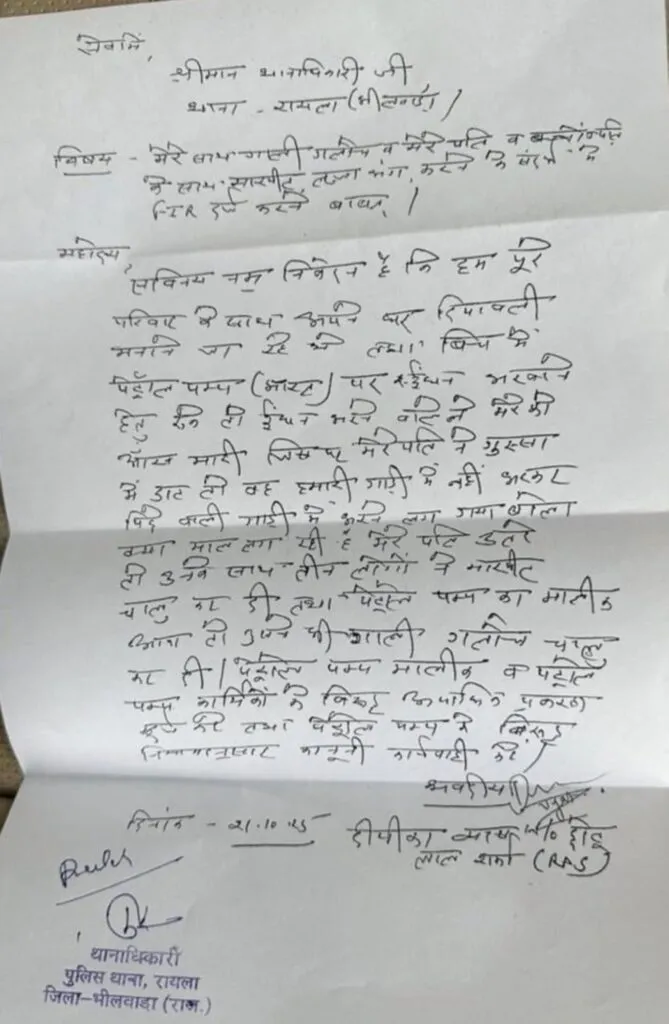 सेवामें,
श्रीमान थानाधिकारी जी
थाना - रायला (भीलवाड़ा)
विषय - मेरे साथ गाली गलौच व मेरे पति व
के साथ मारपीट, लज्जा भंग, करने के संदर्भ में
FIR दर्ज करने बाबत् /
महोदय,
सविनय नम्र निवेदन है कि हम पूरे
परिवार के साथ अपने घर दिपावली
मनाने जा रहे थे तथा बिच में
पेट्रोल पम्प (भारत) पर ईंधन भरवाने
हेतु रुके तो ईंधन भरने वाले ने मेरे को
आँख मारी जिस पर मेरे पति ने गुस्सा
में डाट तो वह हमारी गाड़ी में नहीं भरकर
पिछे वाली गाड़ी में भरने लग गया बोला
क्या माल लग रही है मेरे पति उतरे
तो उनके साथ तीन लोगों ने मारपीट
चालु कर दी तथा पेट्रोल पम्प का मालीक
आया तो उसने भी गाली गलौच चालु
कर दी / पेट्रोल पम्प मालीक व पेट्रोल
पम्प कार्मिकों के विरूद्ध अपराधिक प्रकरण
दर्ज करें तथा पेट्रोल पम्प के विरूद्ध
नियमानुसार कानूनी कार्यवाही करें /
भवदीया
दिनांक - 21.10.25
दीपीका व्यास W/o छोटू
लाल शर्मा (RAS)
थानाधिकारी
पुलिस थाना, रायला
जिला-भीलवाडा (राज.)